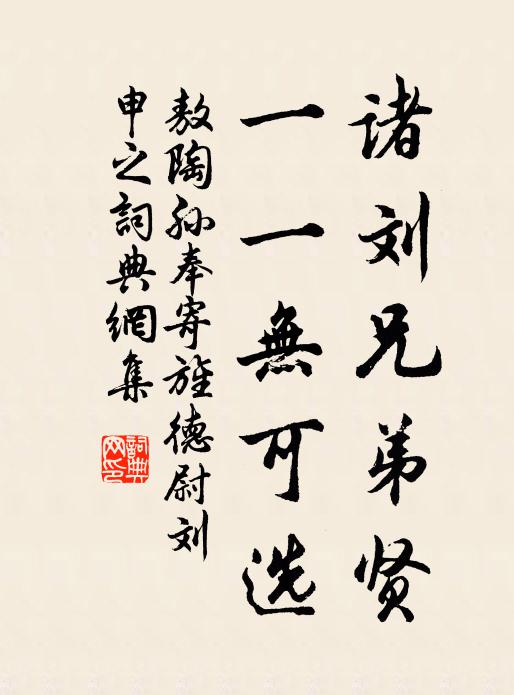 诸刘兄弟贤
一一無可选
敖陶孙奉寄旌德尉刘
申之詞典網集
詞典
网印